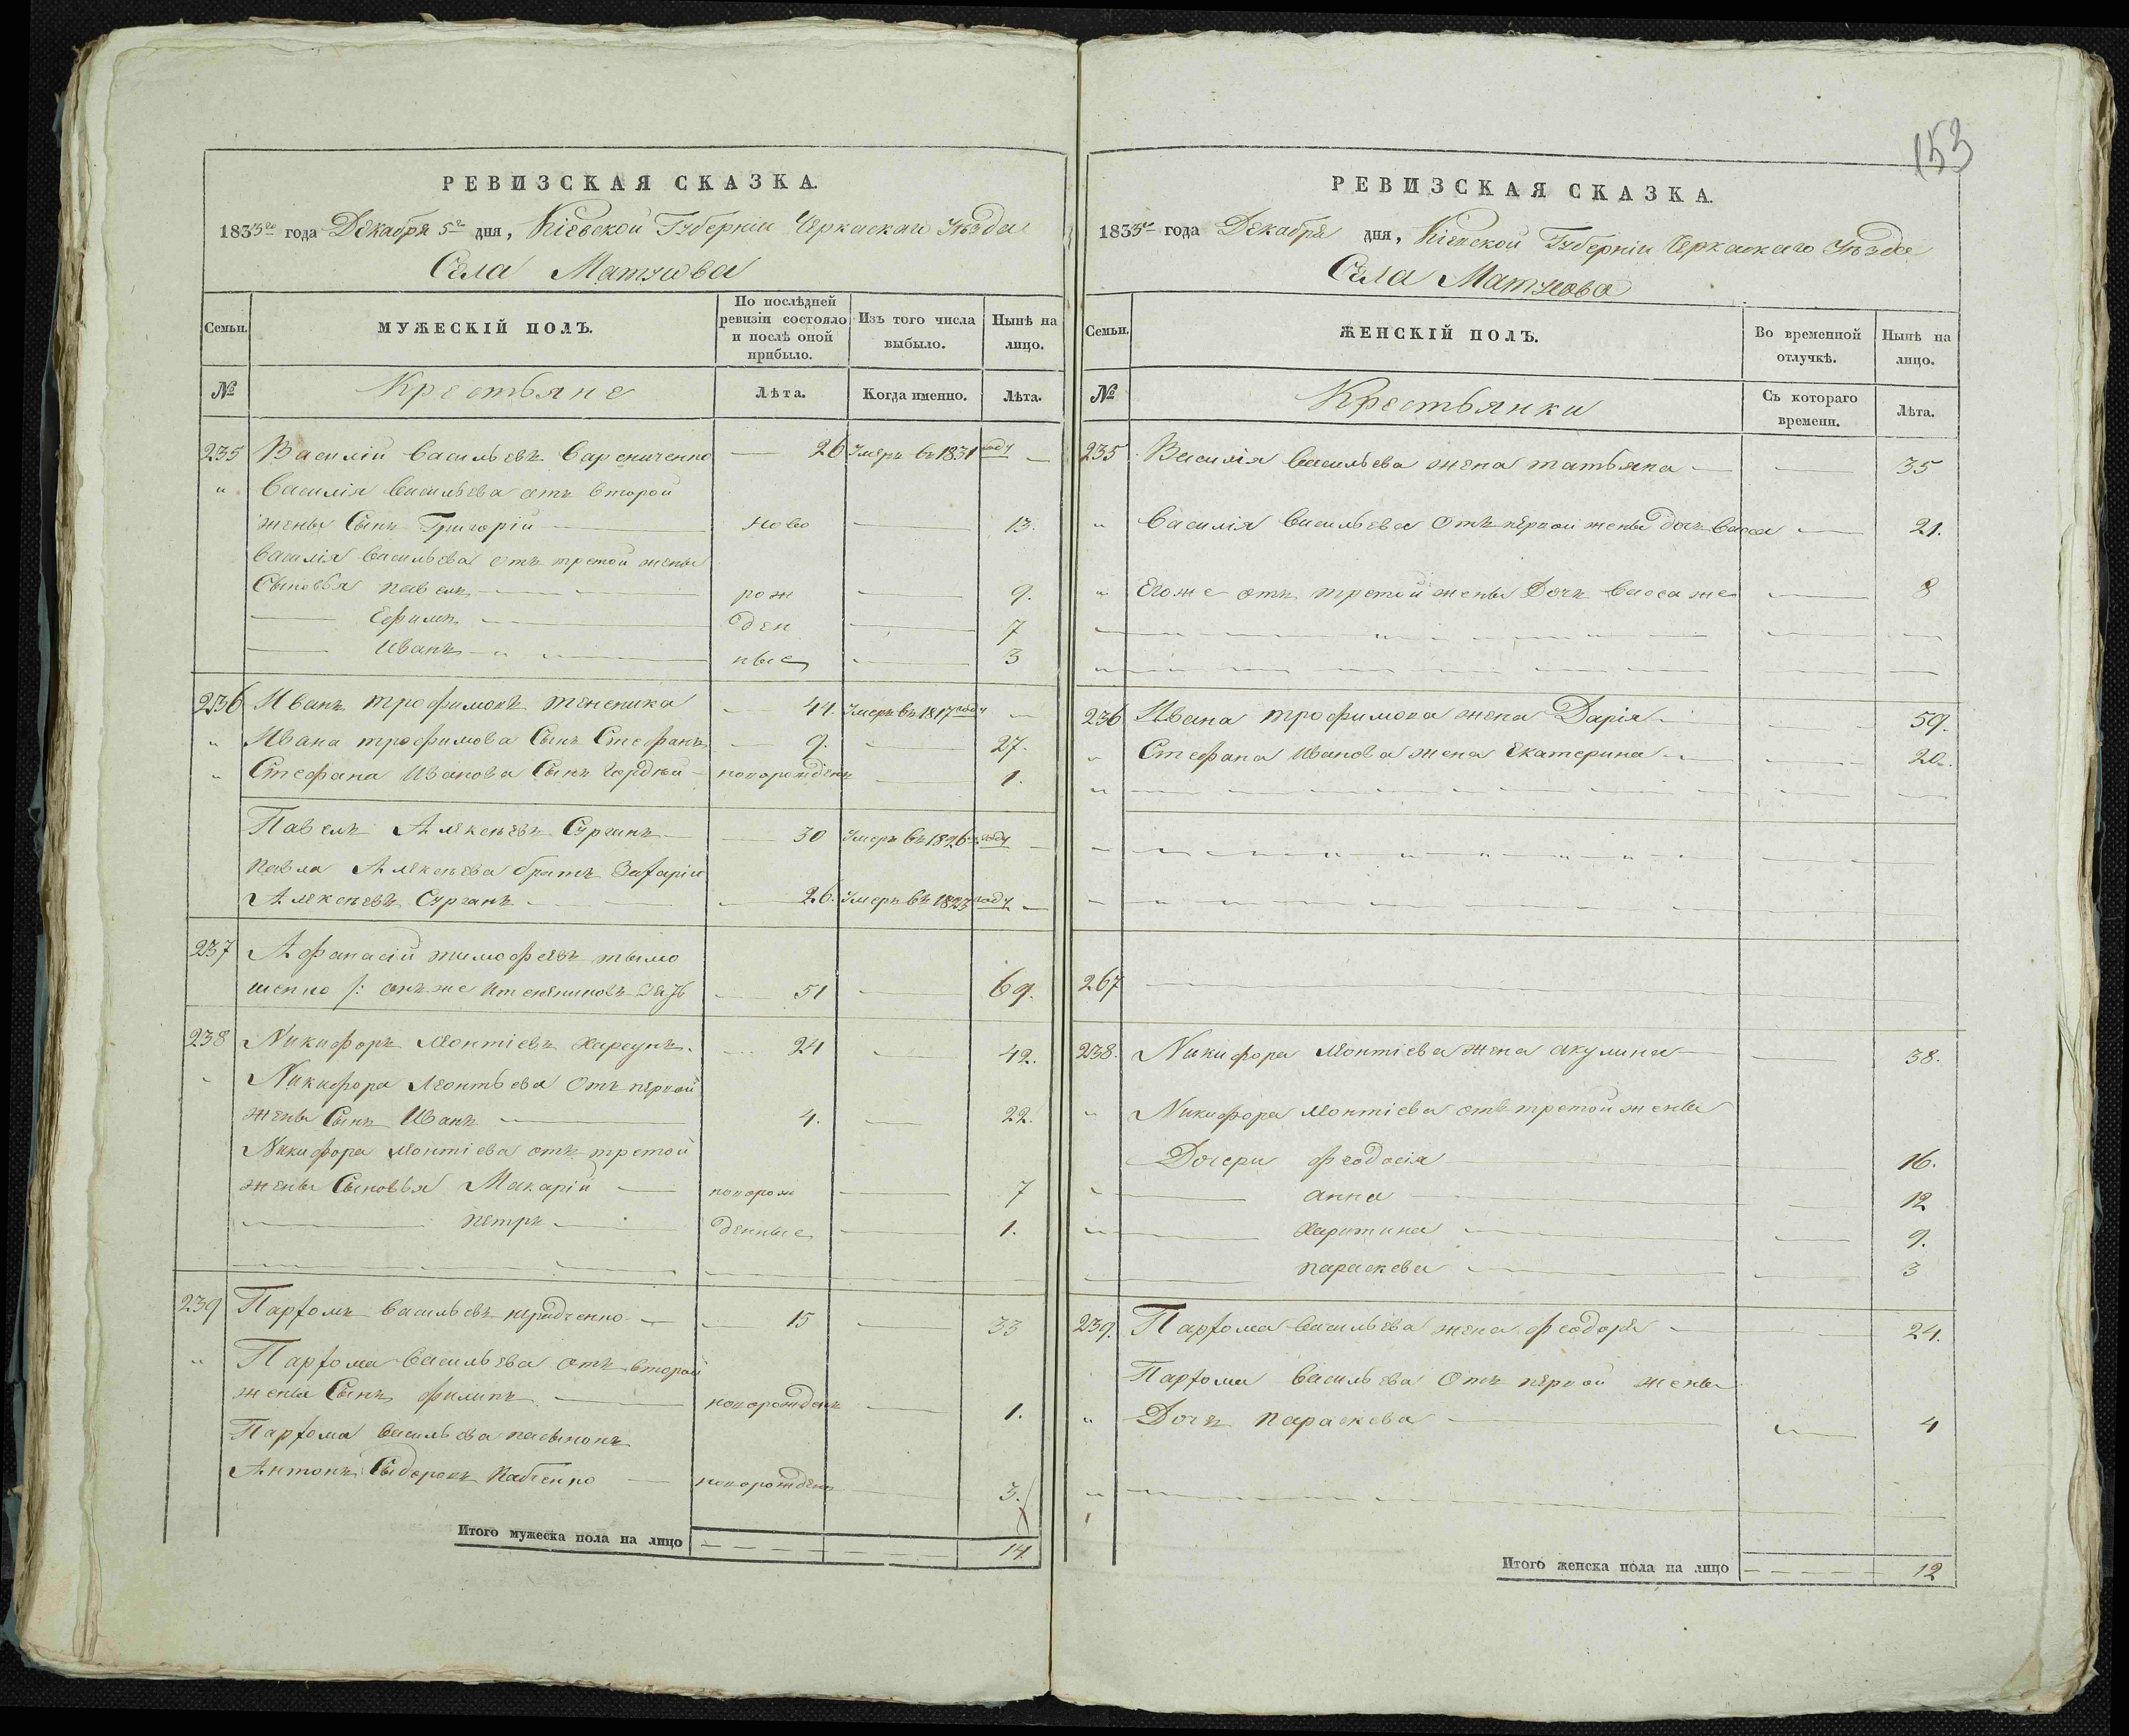 153
РЕВИЗСКАЯ СКАЗКА.
1833го года Декабря 5го дня, Кіевской Губерніи Черкаскаго Уѣзда
Села Матусова
Семьи.
МУЖЕСКІЙ ПОЛЪ.
По послѣдней ревизіи состояло и послѣ оной прибыло.
Изъ того числа выбыло.
Нынѣ на лицо.
№
Крестьяне
Лѣта.
Когда именно.
Лѣта.
235 Василій Васильевъ Варениченко — 26 Умеръ въ 1831 году —
" Василія Васильева отъ второй
жены Сынъ Григорій — ново — 13.
Василія Васильева отъ третой жены
Сыновья Павелъ — рож — 9.
— Ефимъ — ден — 7
— Иванъ — ные — 3
236 Иванъ Трофимовъ — 44. Умеръ въ 1817 году —
" Ивана Трофимова Сынъ Стефанъ — 9. — 27.
" Стефана Иванова Сынъ Гордѣй — новорожденъ — 1.
Павелъ Алексѣевъ Сурганъ — 30 Умеръ въ 1826 году —
Павла Алексѣева братъ Захарій
Алексѣевъ Сурганъ — 26. Умеръ въ 1823 году —
237 Афанасій Тимофѣевъ Тымо
шенко /: онъ же — 51 — 69.
238 Никифоръ Леонтіевъ — 24 — 42.
" Никифора Леонтьева Отъ первой
жены Сынъ Иванъ — 4. — 22.
Никифора Леонтіева отъ третой
жены Сыновья Макарій — новорож — 7
— Петръ — денные — 1.
239 Пархомъ Васильевъ — 15 — 33
" Пархома Васильева отъ второй
жены Сынъ Филипъ — новорожденъ — 1.
Пархома Васильева пасынокъ
Антонъ Сыдоровъ — новорожденъ — 3.
Итого мужеска пола на лицо — 14.
РЕВИЗСКАЯ СКАЗКА.
1833го года Декабря дня, Кіевской Губерніи Черкаскаго Уѣзда
Села Матусова
Семьи.
ЖЕНСКІЙ ПОЛЪ.
Во временной отлучкѣ.
Нынѣ на лицо.
№
Крестьянки
Съ котораго времени.
Лѣта.
235 Василія Васильева жена Татьяна — 35
" Василія Васильева Отъ первой жены дочь Васса — 21.
" Егоже отъ третой жены Дочь Васса же — 8
236 Ивана Трофимова жена Дарія — 59.
" Стефана Иванова жена Екатерина — 20.
267
238. Никифора Леонтіева жена Акулина — 38.
" Никифора Леонтіева отъ третой жены
Дочери Феодосія — 16.
— Анна — 12
— Харитина — 9.
— Параскева — 3
239. Пархома Васильева жена Феодора — 24.
Пархома Васильева Отъ первой жены
" Дочь Параскева — 4
Итого женска пола на лицо — 12